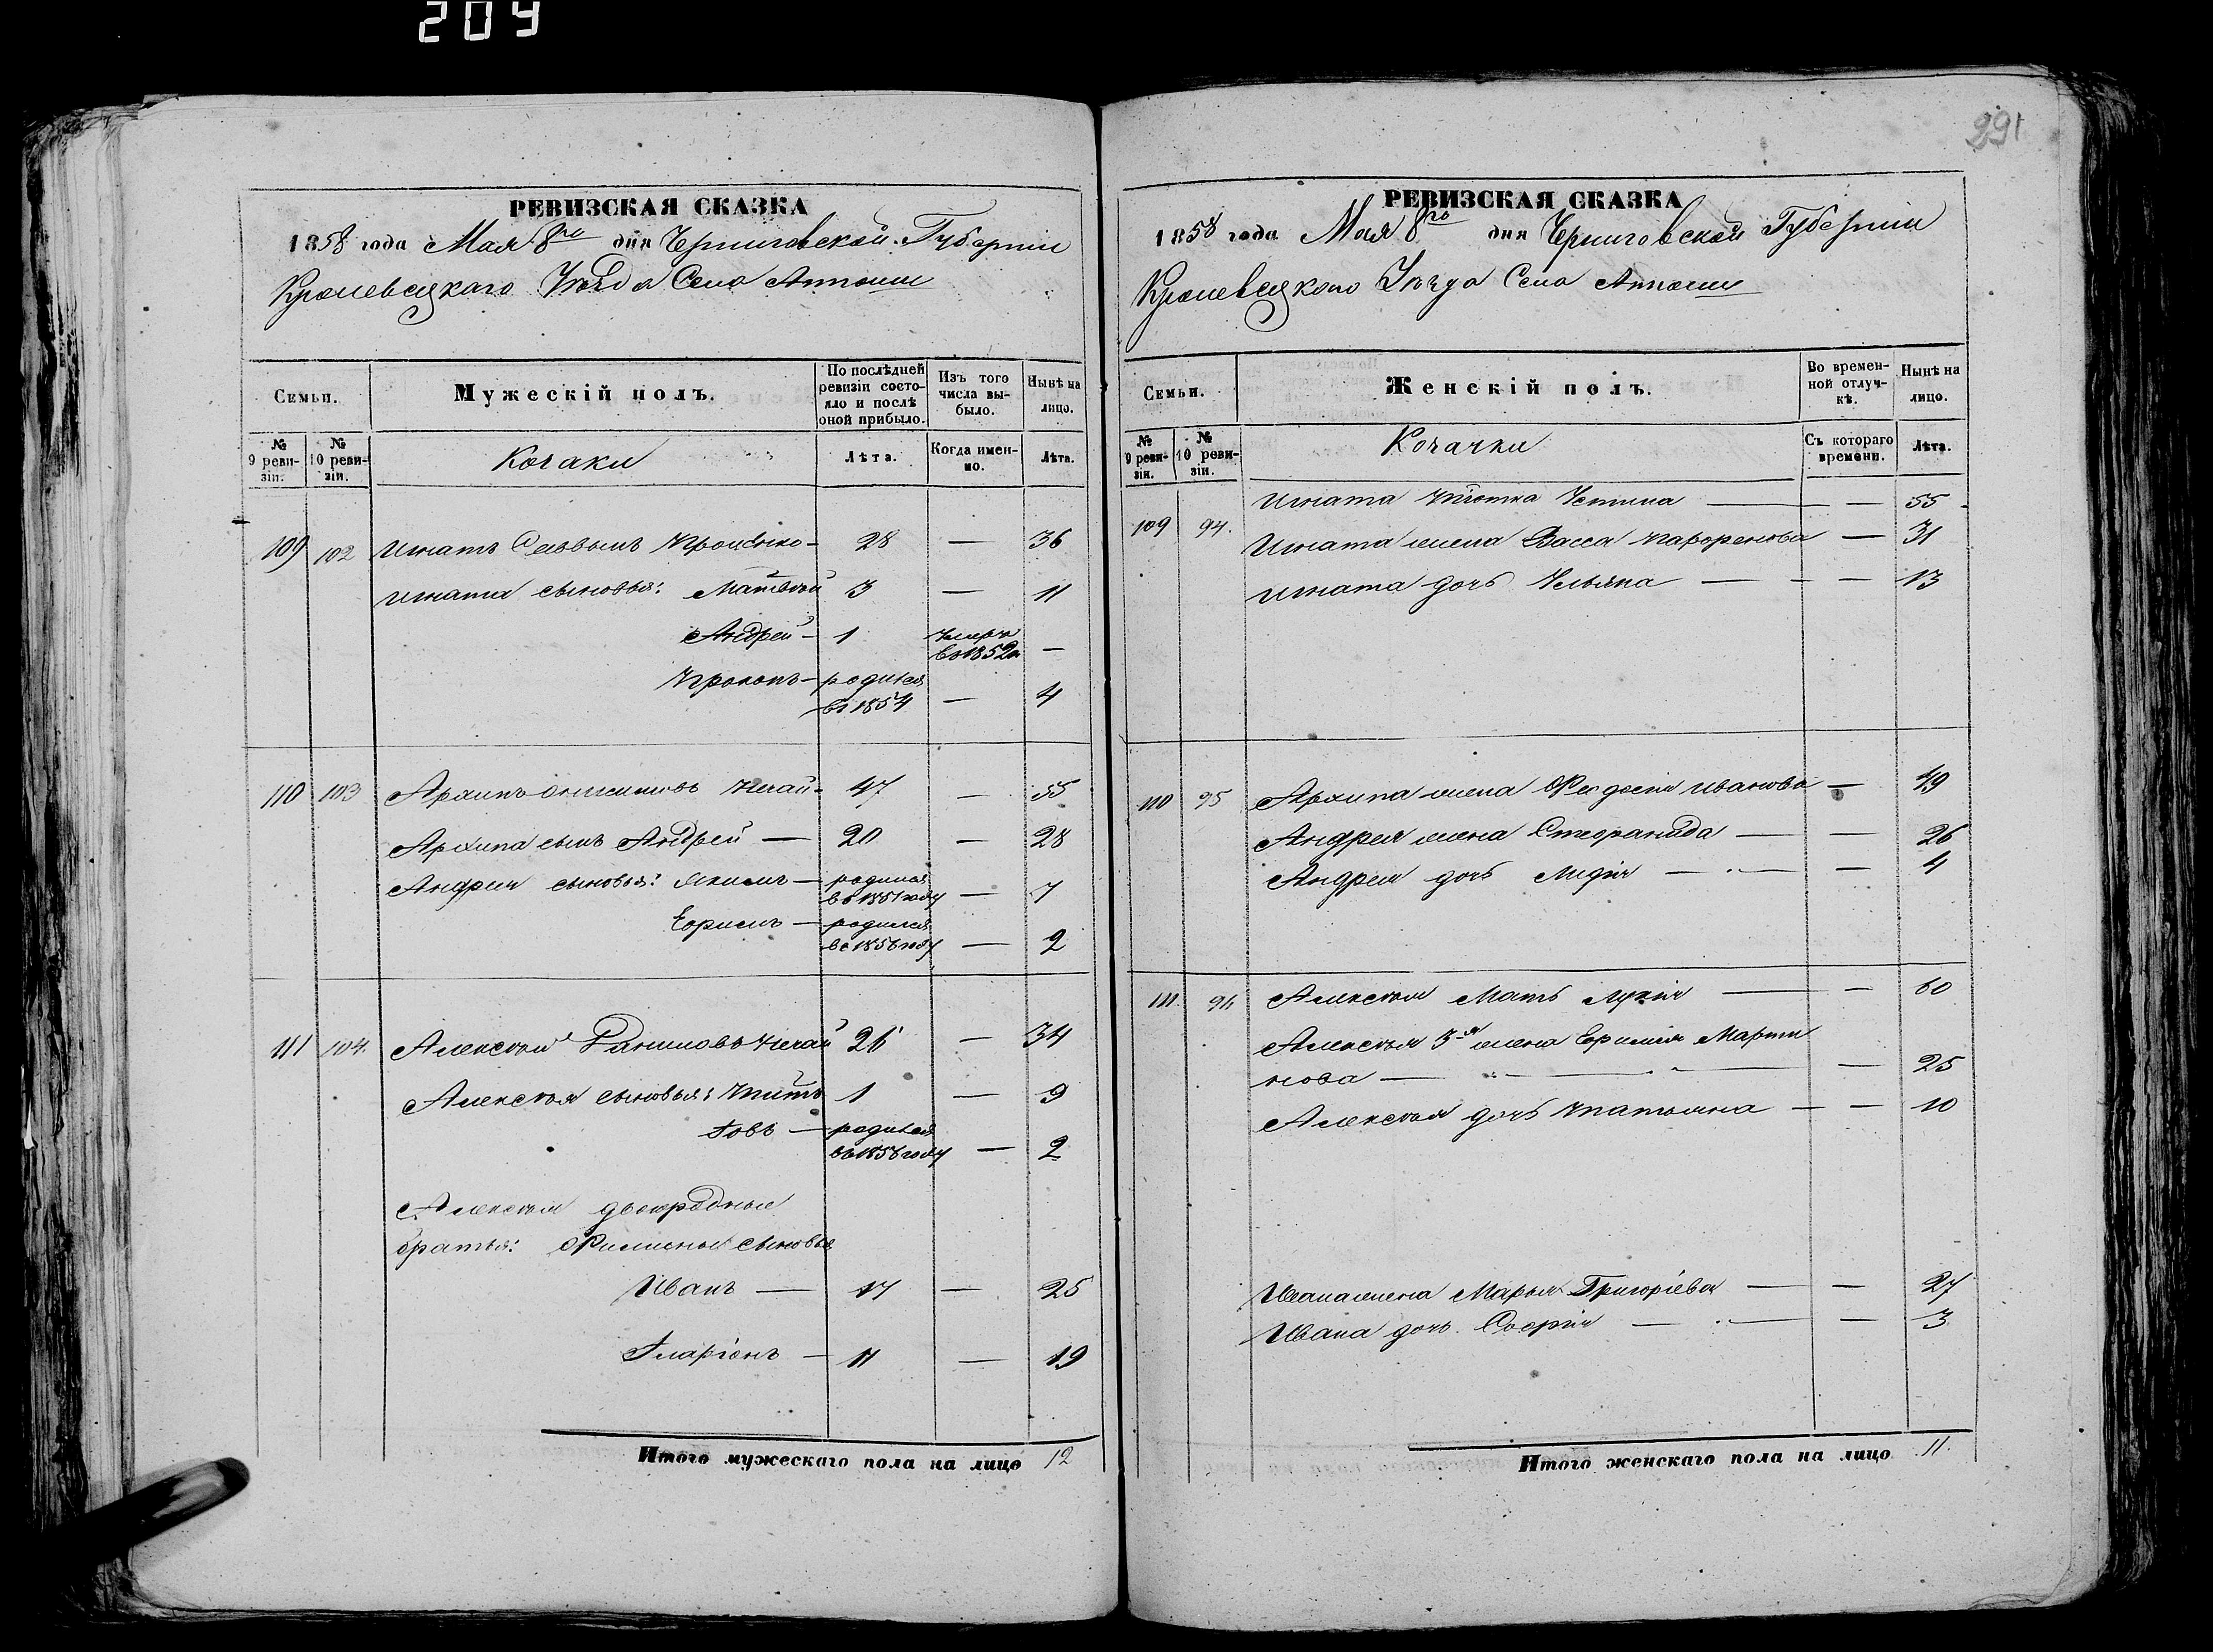 209
291
РЕВИЗСКАЯ СКАЗКА
1858 года Мая 8го дня Черниговской Губерніи
Кролевецкаго Уѣзда Села
Семьи.
Мужескій полъ.
По послѣдней ревизіи состояло и послѣ оной прибыло.
Изъ того числа выбыло.
Нынѣ на лицо.
№ 9 ревизіи.
№ 10 ревизіи.
Козаки
Лѣта.
Когда именно.
Лѣта.
109 102 Игнатъ 28 — 36
Игната сыновья: Матвѣй 3 — 11
Андрей — 1 умеръ въ 1852 —
Прокопъ — родился въ 1854 — 4
110 103 Архипъ Нечай 47 — 55
Архипа сынъ Андрей — 20 — 28
Андрея сыновья: Якимъ — родился въ 1851 году — 7
Ефимъ — родился въ 1856 году — 2
111 104. Алексѣй Даниловъ Нечай 26 — 34
Алексѣя сыновья: Титъ 1 — 9
Іовъ — родился въ 1856 году — 2
Алексѣя двоюродные
братья: сыновья
Иванъ — 17 — 25
Іларіонъ — 11 — 19
Итого мужескаго пола на лицо 12
РЕВИЗСКАЯ СКАЗКА
1858 года Мая 8го дня Черниговской Губерніи
Кролевецкого Уѣзда Села
Семьи.
Женскій полъ.
Во временной отлучкѣ.
Нынѣ на лицо.
№ 9 ревизіи.
№ 10 ревизіи.
Козачки
Съ котораго времени.
Лѣта.
Игната тіотка Устина — — 55
109 94. Игната жена Васса Парфенова — 31
Игната дочь Ульяна — — 13
110 95 Архипа жена Феодосія Иванова — 49
Андрея жена Стефанида — — 26
Андрея дочь Лидія — — 4
111. 96 Алексѣя Мать Лукія — — 60
Алексѣя 3я жена Ефимія Марти
нова — — 25
Алексѣя дочь Татьяна — — 10
Ивана жена Марья Григоріева — — 27
Ивана дочь Софія — — 3
Итого женскаго пола на лицо 11.